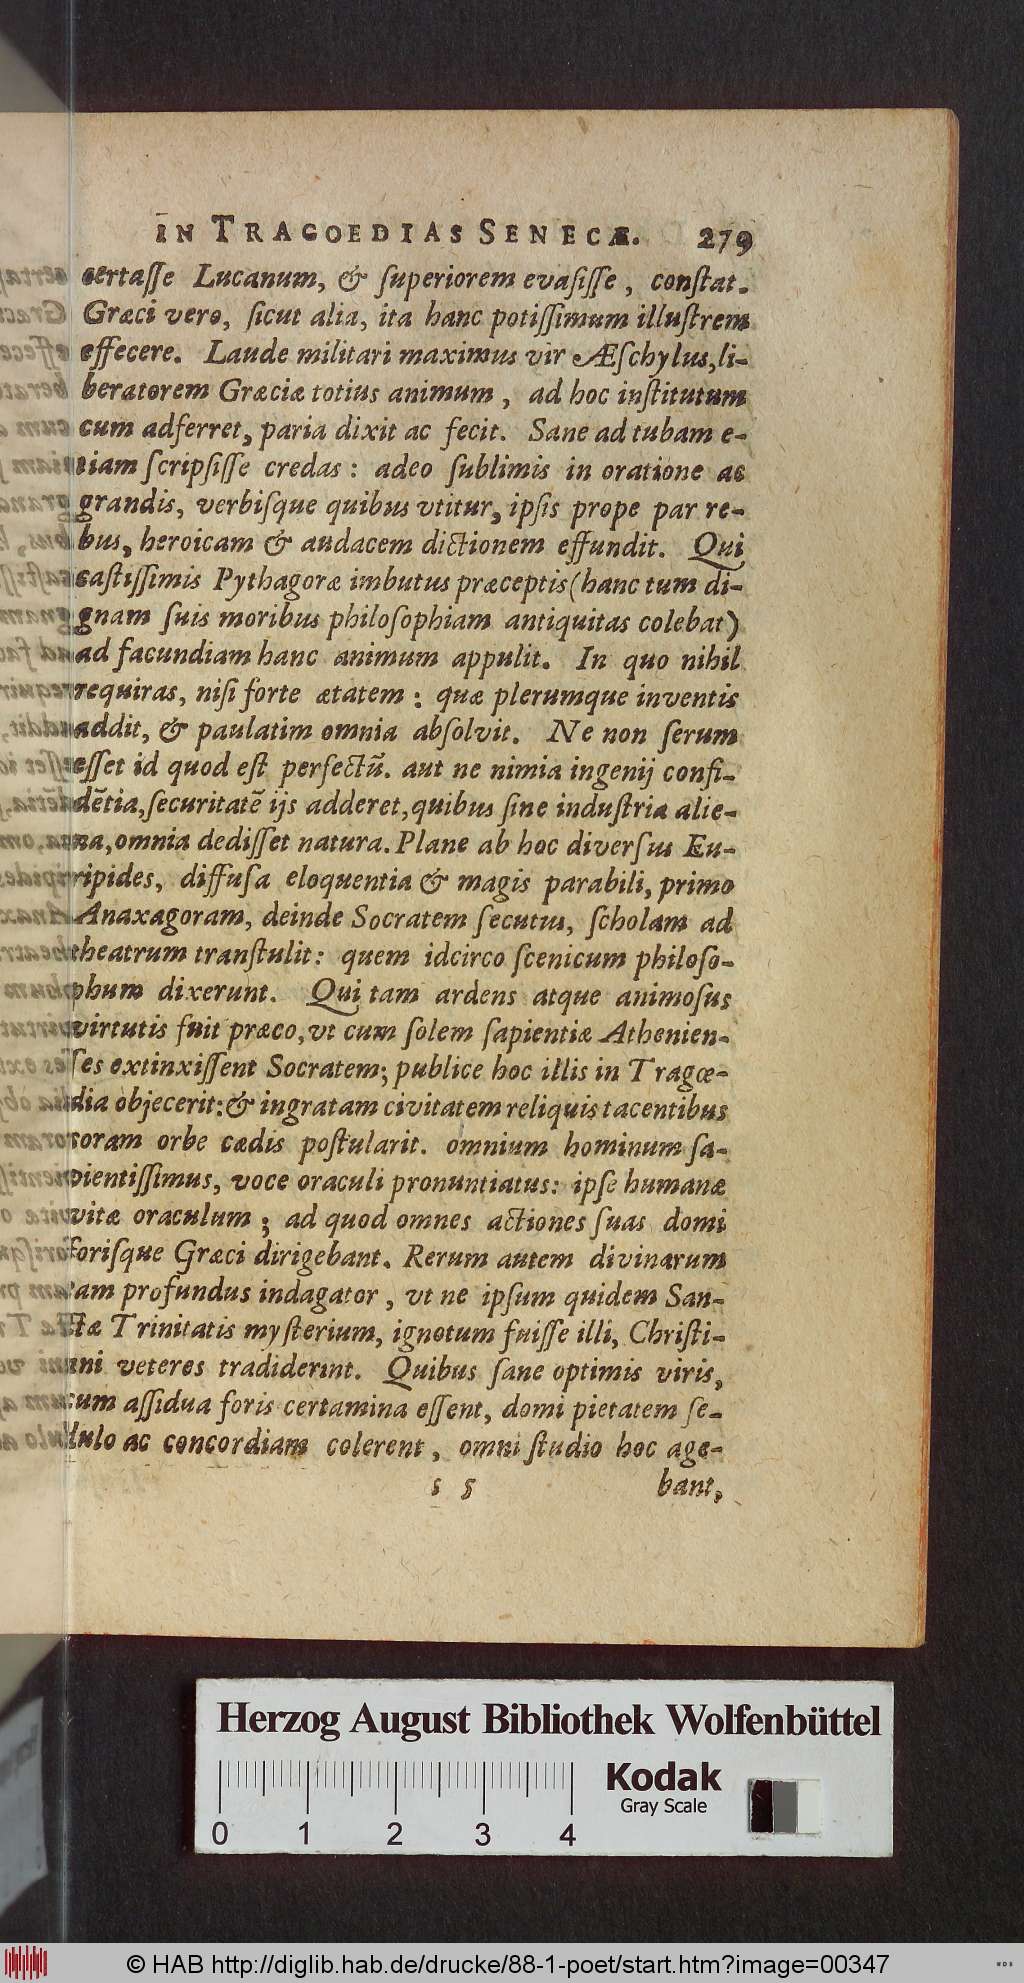 IN TRAGOEDIAS SENECÆ. 279
certaſſe Lucanum, & ſuperiorem evaſiſſe, conſtat.
Græci vero, ſicut alia, ita hanc potiſſimum illuſtrem
effecere. Laude militari maximus vir Æſchylus, li-
beratorem Græciæ totius animum, ad hoc inſtitutum
cum adferret, paria dixit ac fecit. Sane ad tubam e-
tiam ſcripſiſſe credas: adeo ſublimis in oratione ac
grandis, verbiſque quibus vtitur, ipſis prope par re-
bus, heroicam & audacem dictionem effundit. Qui
caſtiſſimis Pythagoræ imbutus præceptis (hanc tum di-
gnam ſuis moribus philoſophiam antiquitas colebat)
ad facundiam hanc animum appulit. In quo nihil
requiras, niſi forte ætatem: quæ plerumque inventis
addit, & paulatim omnia abſolvit. Ne non ſerum
eſſet id quod eſt perfectū. aut ne nimia ingenij confi-
dētia, ſecuritatē ijs adderet, quibus ſine induſtria alie-
na, omnia dediſſet natura. Plane ab hoc diverſus Eu-
ripides, diffuſa eloquentia & magis parabili, primo
Anaxagoram, deinde Socratem ſecutus, ſcholam ad
theatrum tranſtulit: quem idcirco ſcenicum philoſo-
phum dixerunt. Qui tam ardens atque animoſus
virtutis fuit præco, vt cum ſolem ſapientiæ Athenien-
ſes extinxiſſent Socratem; publice hoc illis in Tragœ-
dia objecerit: & ingratam civitatem reliquis tacentibus
coram orbe cædis poſtularit. omnium hominum ſa-
pientiſſimus, voce oraculi pronuntiatus: ipſe humanæ
vitæ oraculum; ad quod omnes actiones ſuas domi
foriſque Græci dirigebant. Rerum autem divinarum
tam profundus indagator, vt ne ipſum quidem San-
ctæ Trinitatis myſterium, ignotum fuiſſe illi, Chriſti-
ani veteres tradiderint. Quibus ſane optimis viris,
cum aſſidua foris certamina eſſent, domi pietatem ſe-
dulo ac concordiam colerent, omni ſtudio hoc age-
s §
bant,
Herzog August Bibliothek Wolfenbüttel
Kodak
Gray Scale
0 1 2 3 4
© HAB http://diglib.hab.de/drucke/88-1-poet/start.htm?image=00347